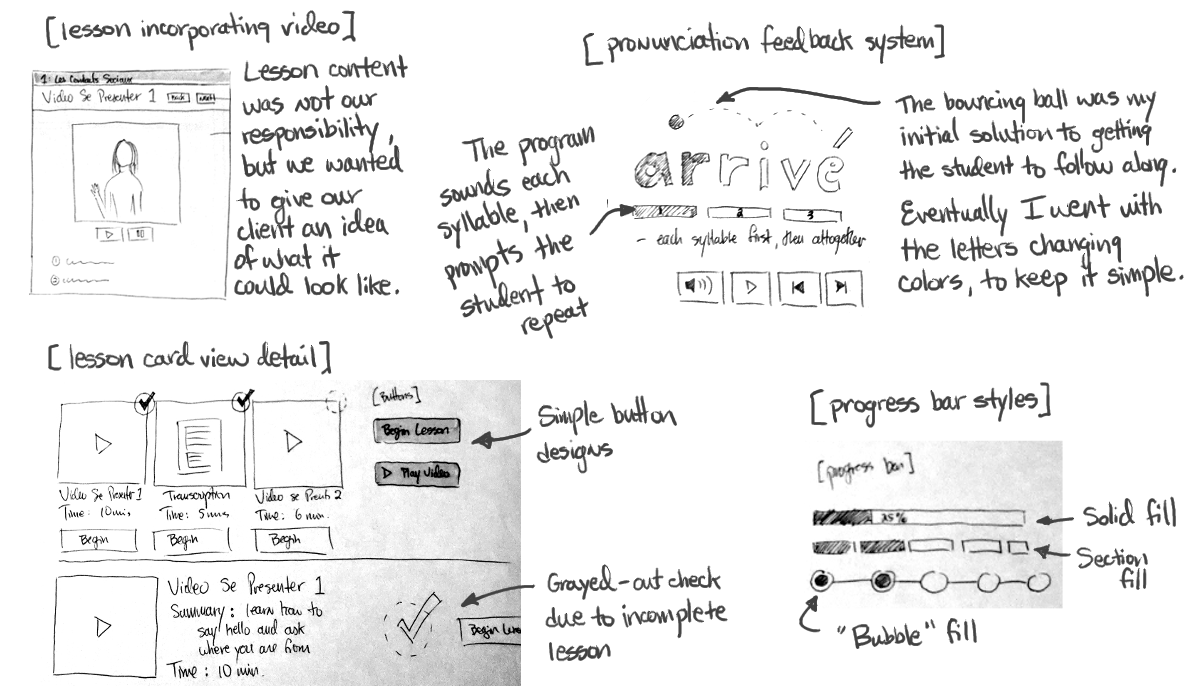 [lesson incorporating video]
1: Les Contacts Sociaux
Video Se Presenter 1
Back
Next
1
2
Lesson content
was not our
responsibility,
but we wanted
to give our
client an idea
of what it
could look like.
[pronunciation feedback system]
The program
sounds each
syllable, then
prompts the
student to
repeat
arrivé
1 2 3
- each syllable first, then altogether
The bouncing ball was my
initial solution to getting
the student to follow along.
Eventually I went with
the letters changing
colors, to keep it simple.
[lesson card view detail]
Video Se Presenter 1
Time: 10 min
Begin
Transcription
Time: 5 mins
Begin
Video Se Present 2
Time: 6 min.
Begin
[Buttons]
Begin Lesson
Play Video
Simple button
designs
Video Se Presenter 1
Summary: learn how to
say hello and ask
where you are from
Time: 10 min.
Begin Less
Grayed-out check
due to incomplete
lesson
[progress bar styles]
[progress bar]
25%
Solid fill
Section
fill
"Bubble" fill